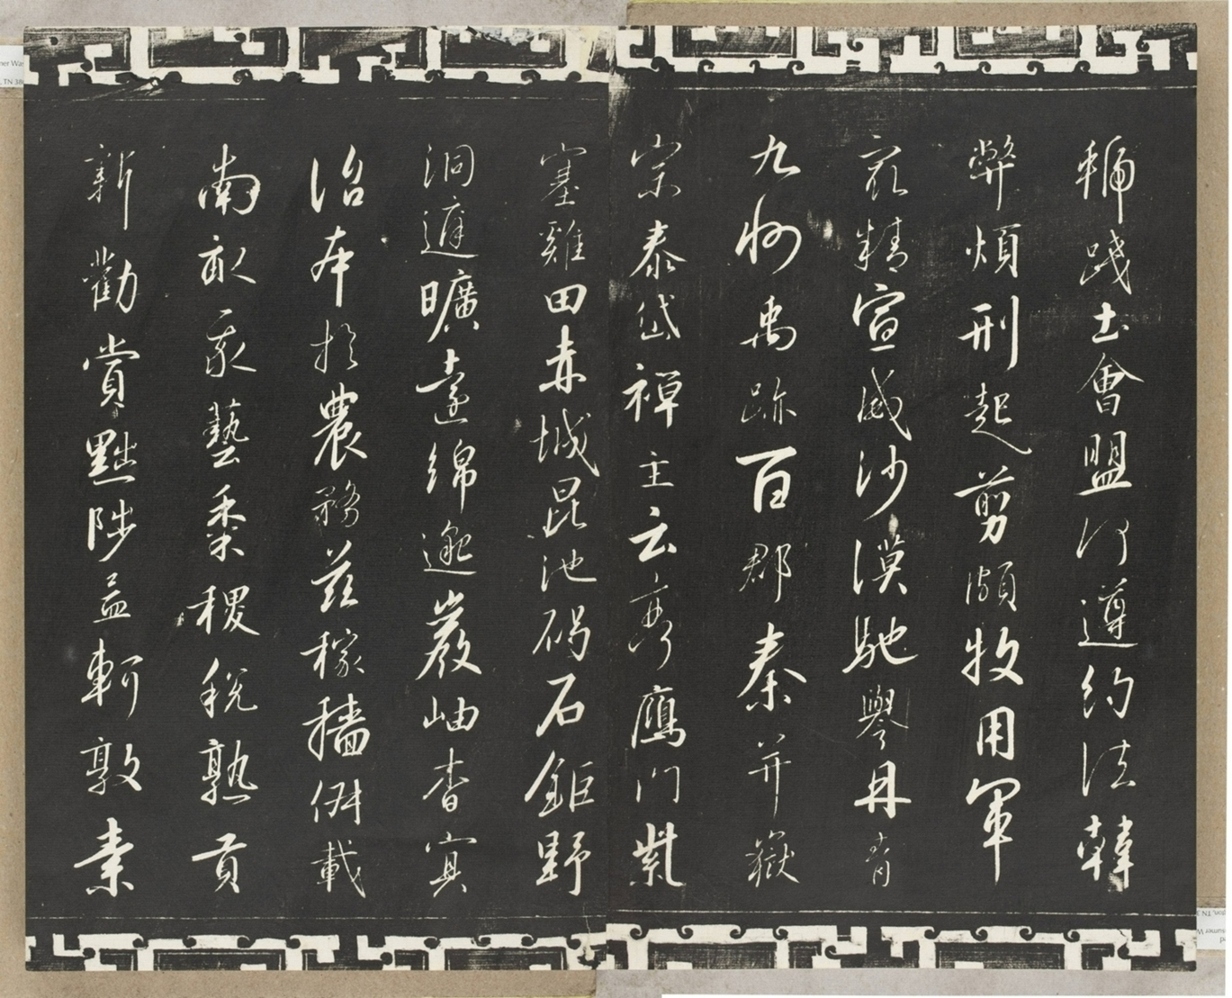 虢踐土會盟何遵約法韓
弊煩刑起剪頗牧用軍
最精宣威沙漠馳譽丹青
九州禹跡百郡秦并嶽
宗泰岱禪主云亭鴈門紫
塞雞田赤城昆池碣石鉅野
洞庭曠遠綿邈巖岫杳冥
治本於農務茲稼穡俶載
南畝我藝黍稷稅熟貢
新勸賞黜陟孟軻敦素